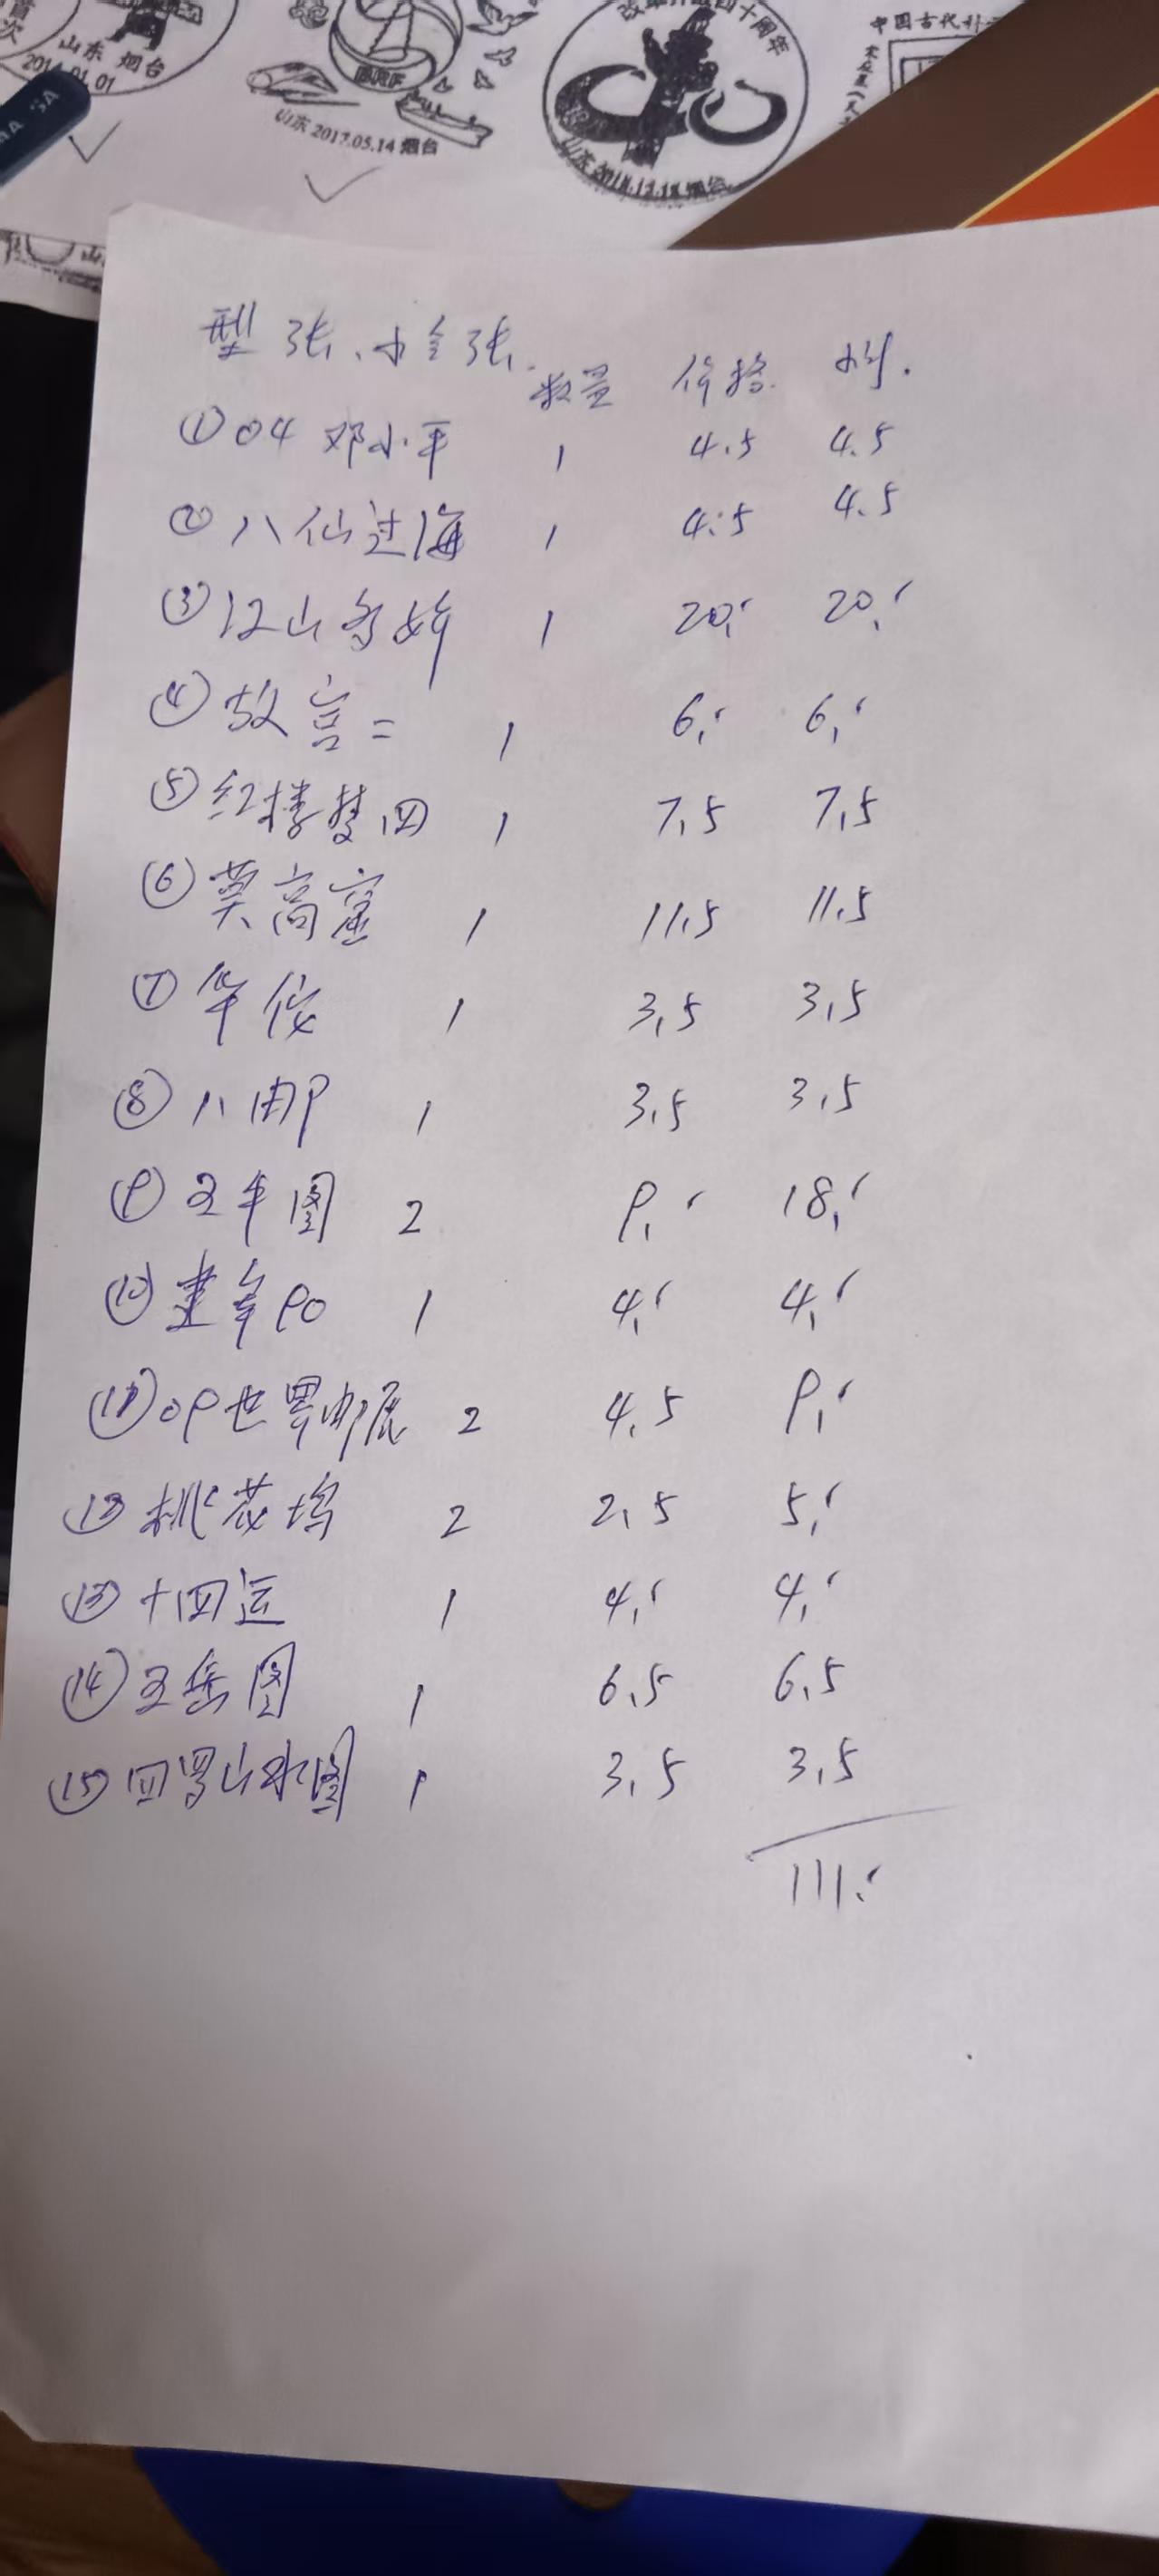 次
山东 烟台
2014.01.01
山东 2017.05.14 烟台
改革开放四十周年
山东 2018.12.18 烟台
中国古代
型张、小全张.
数量 价格 小计.
①04 邓小平 1 4.5 4.5
②八仙过海 1 4.5 4.5
③江山多娇 1 20. 20.
④故宫二 1 6. 6.
⑤红楼梦四 1 7.5 7.5
⑥莫高窟 1 11.5 11.5
⑦华佗 1 3.5 3.5
⑧八邮 1 3.5 3.5
⑨五牛图 2 9. 18.
⑩建军90 1 4. 4.
⑪09世界邮展 2 4.5 9.
⑫桃花坞 2 2.5 5.
⑬十四运 1 4. 4.
⑭五岳图 1 6.5 6.5
⑮四景山水图 1 3.5 3.5
111.